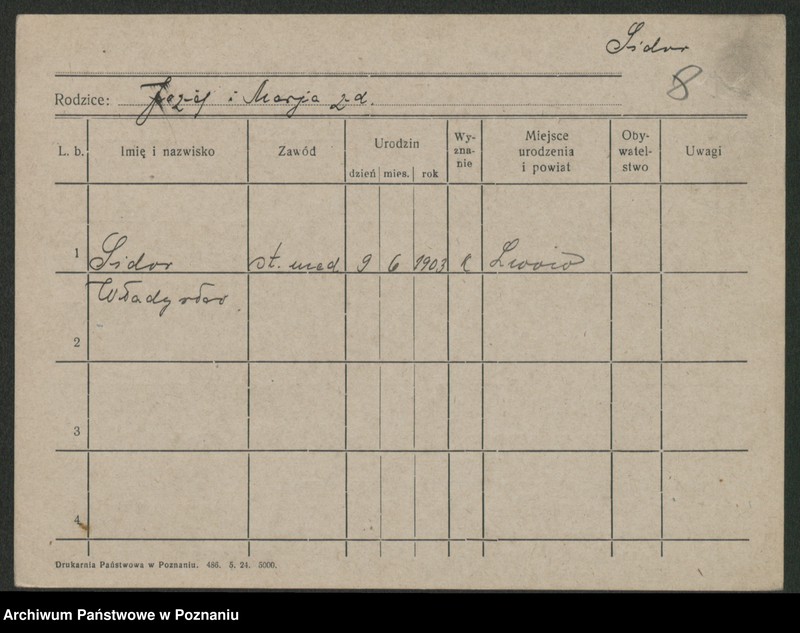 Sidor
8
Rodzice: Józef i Marja z d.
L. b. Imię i nazwisko Zawód Urodzin dzień mies. rok Wy-zna-nie Miejsce urodzenia i powiat Oby-watel-stwo Uwagi
1 Sidor st. med 9 6 1903 k Lwów
Władysław.
2
3
4
Drukarnia Państwowa w Poznaniu. 486. 5. 24. 5000.
Archiwum Państwowe w Poznaniu